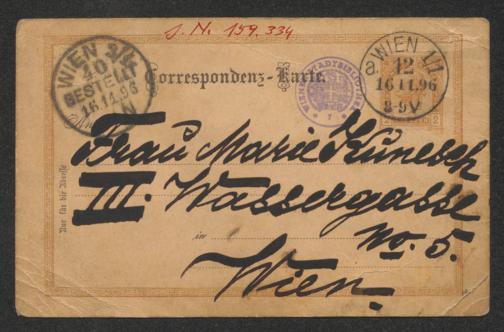 J. N. 159.334
WIEN 3/1
40
BESTELLT
16.11.96
N
Correspondenz-Karte.
WIENER STADTBIBLIOTHEK
WIEN 1/1
a
12
16 11.96
8-9V
2
Nur für die Adresse
Frau Marie Kunesch
III. Wassergasse
in
No. 5.
Wien